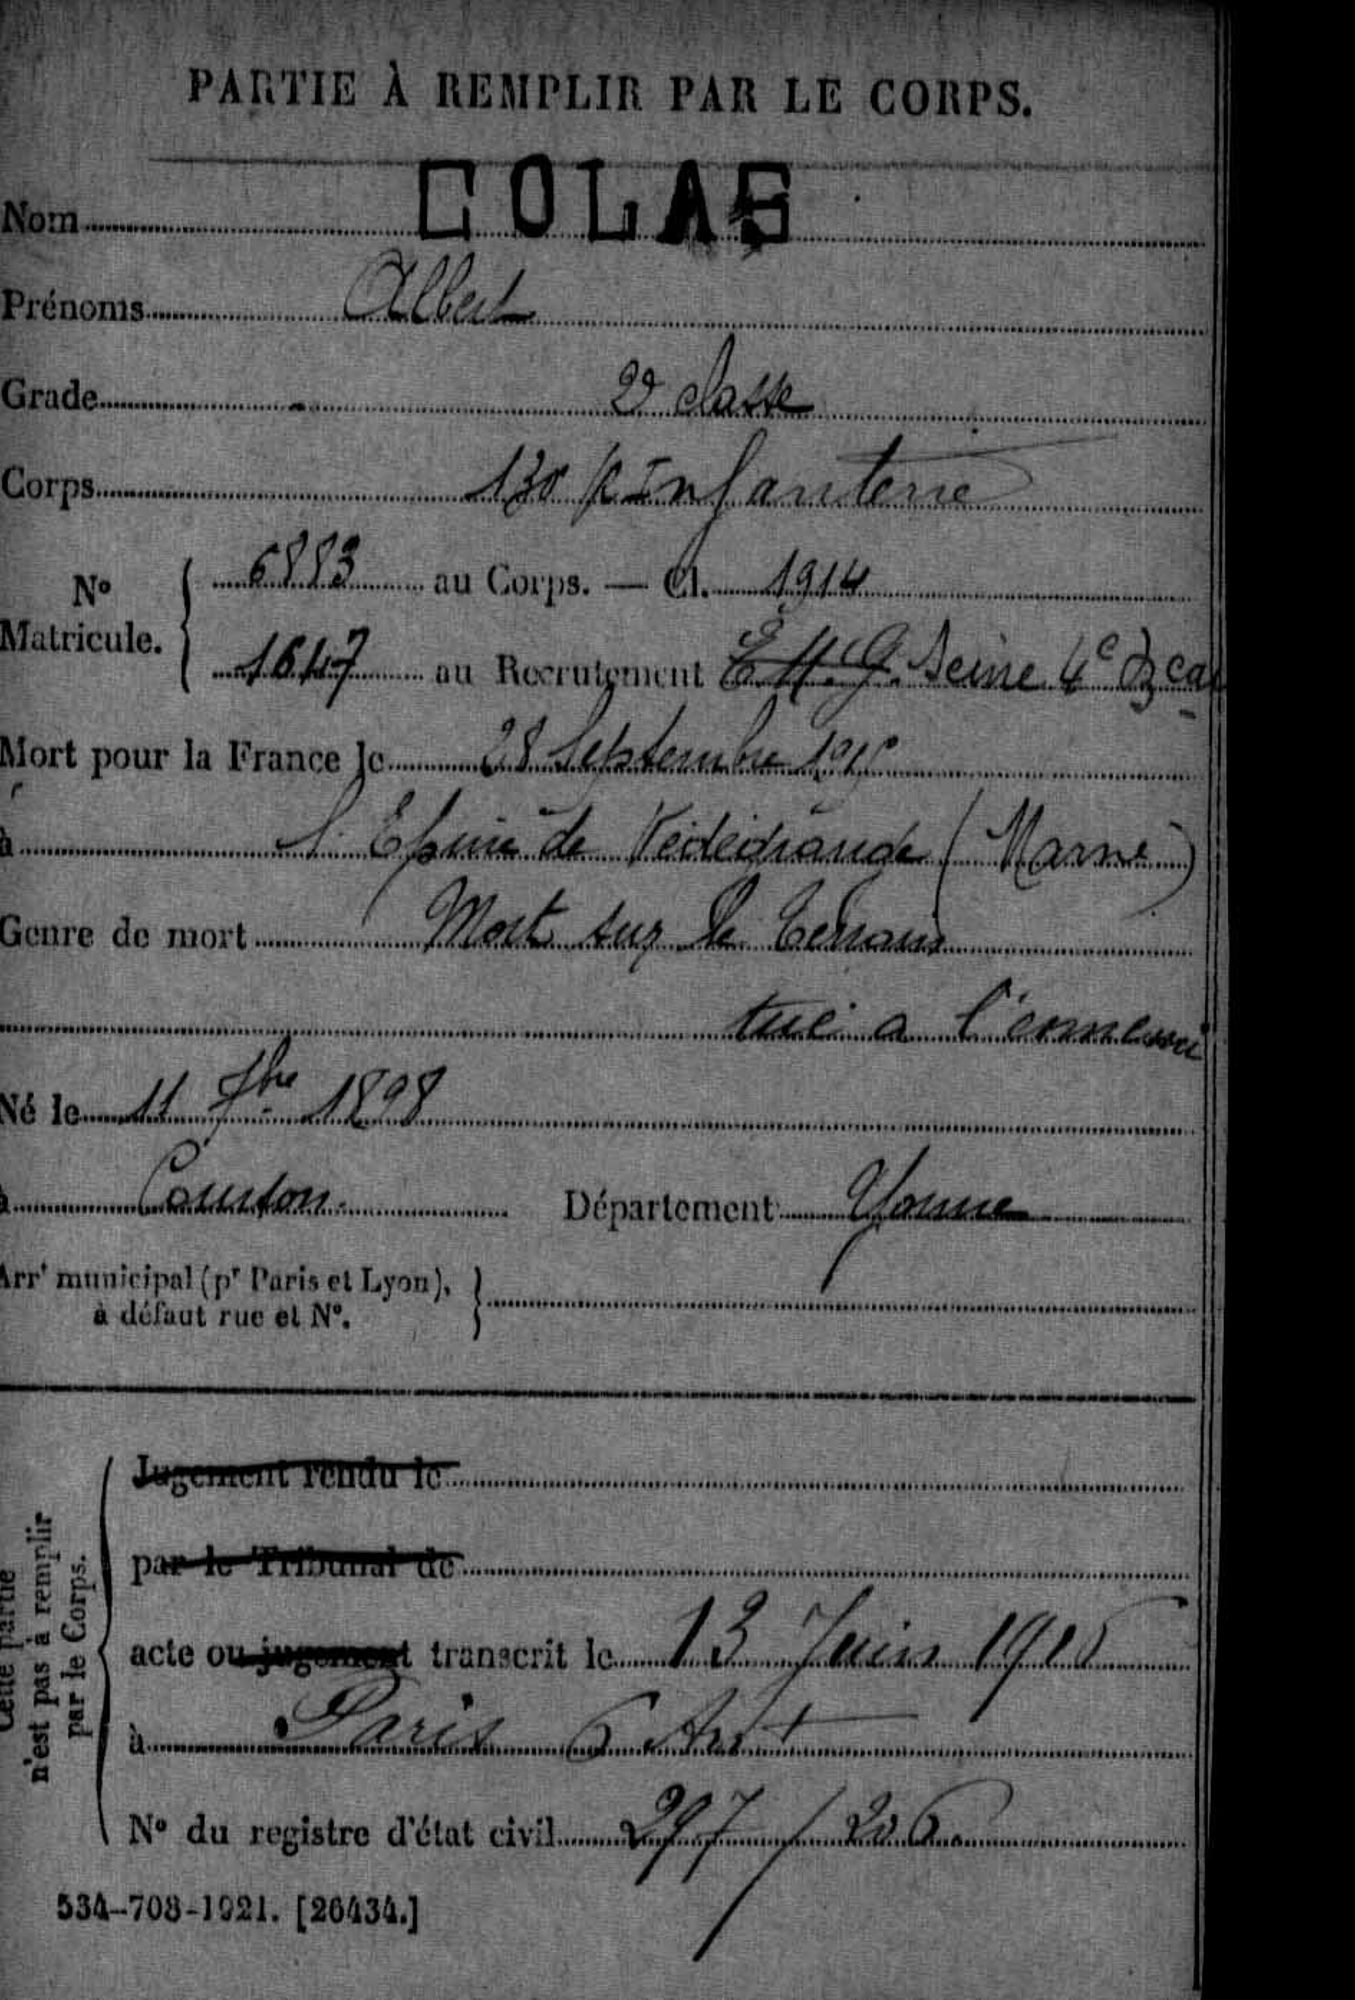 PARTIE À REMPLIR PAR LE CORPS.
Nom COLAS
Prénoms Albert
Grade 2e classe
Corps 130 R Infanterie
No Matricule. 6883 au Corps. — Cl. 1914
1647 au Recrutement E.M.G. Seine 4e
Mort pour la France le 28 Septembre 1915
à l'Epine de Védégrange (Marne)
Genre de mort Mort sur le terrain
tué a l'ennemi
Né le 11 1898
à Courson Département Yonne
Arrt municipal (pr Paris et Lyon),
à défaut rue et No.
Cette partie
n'est pas à remplir
par le Corps.
Jugement rendu le
par le Tribunal de
acte ou jugement transcrit le 13 Juin 1916
à Paris 6 Arrt
No du registre d'état civil 297/206
534-708-1921. [26434.]